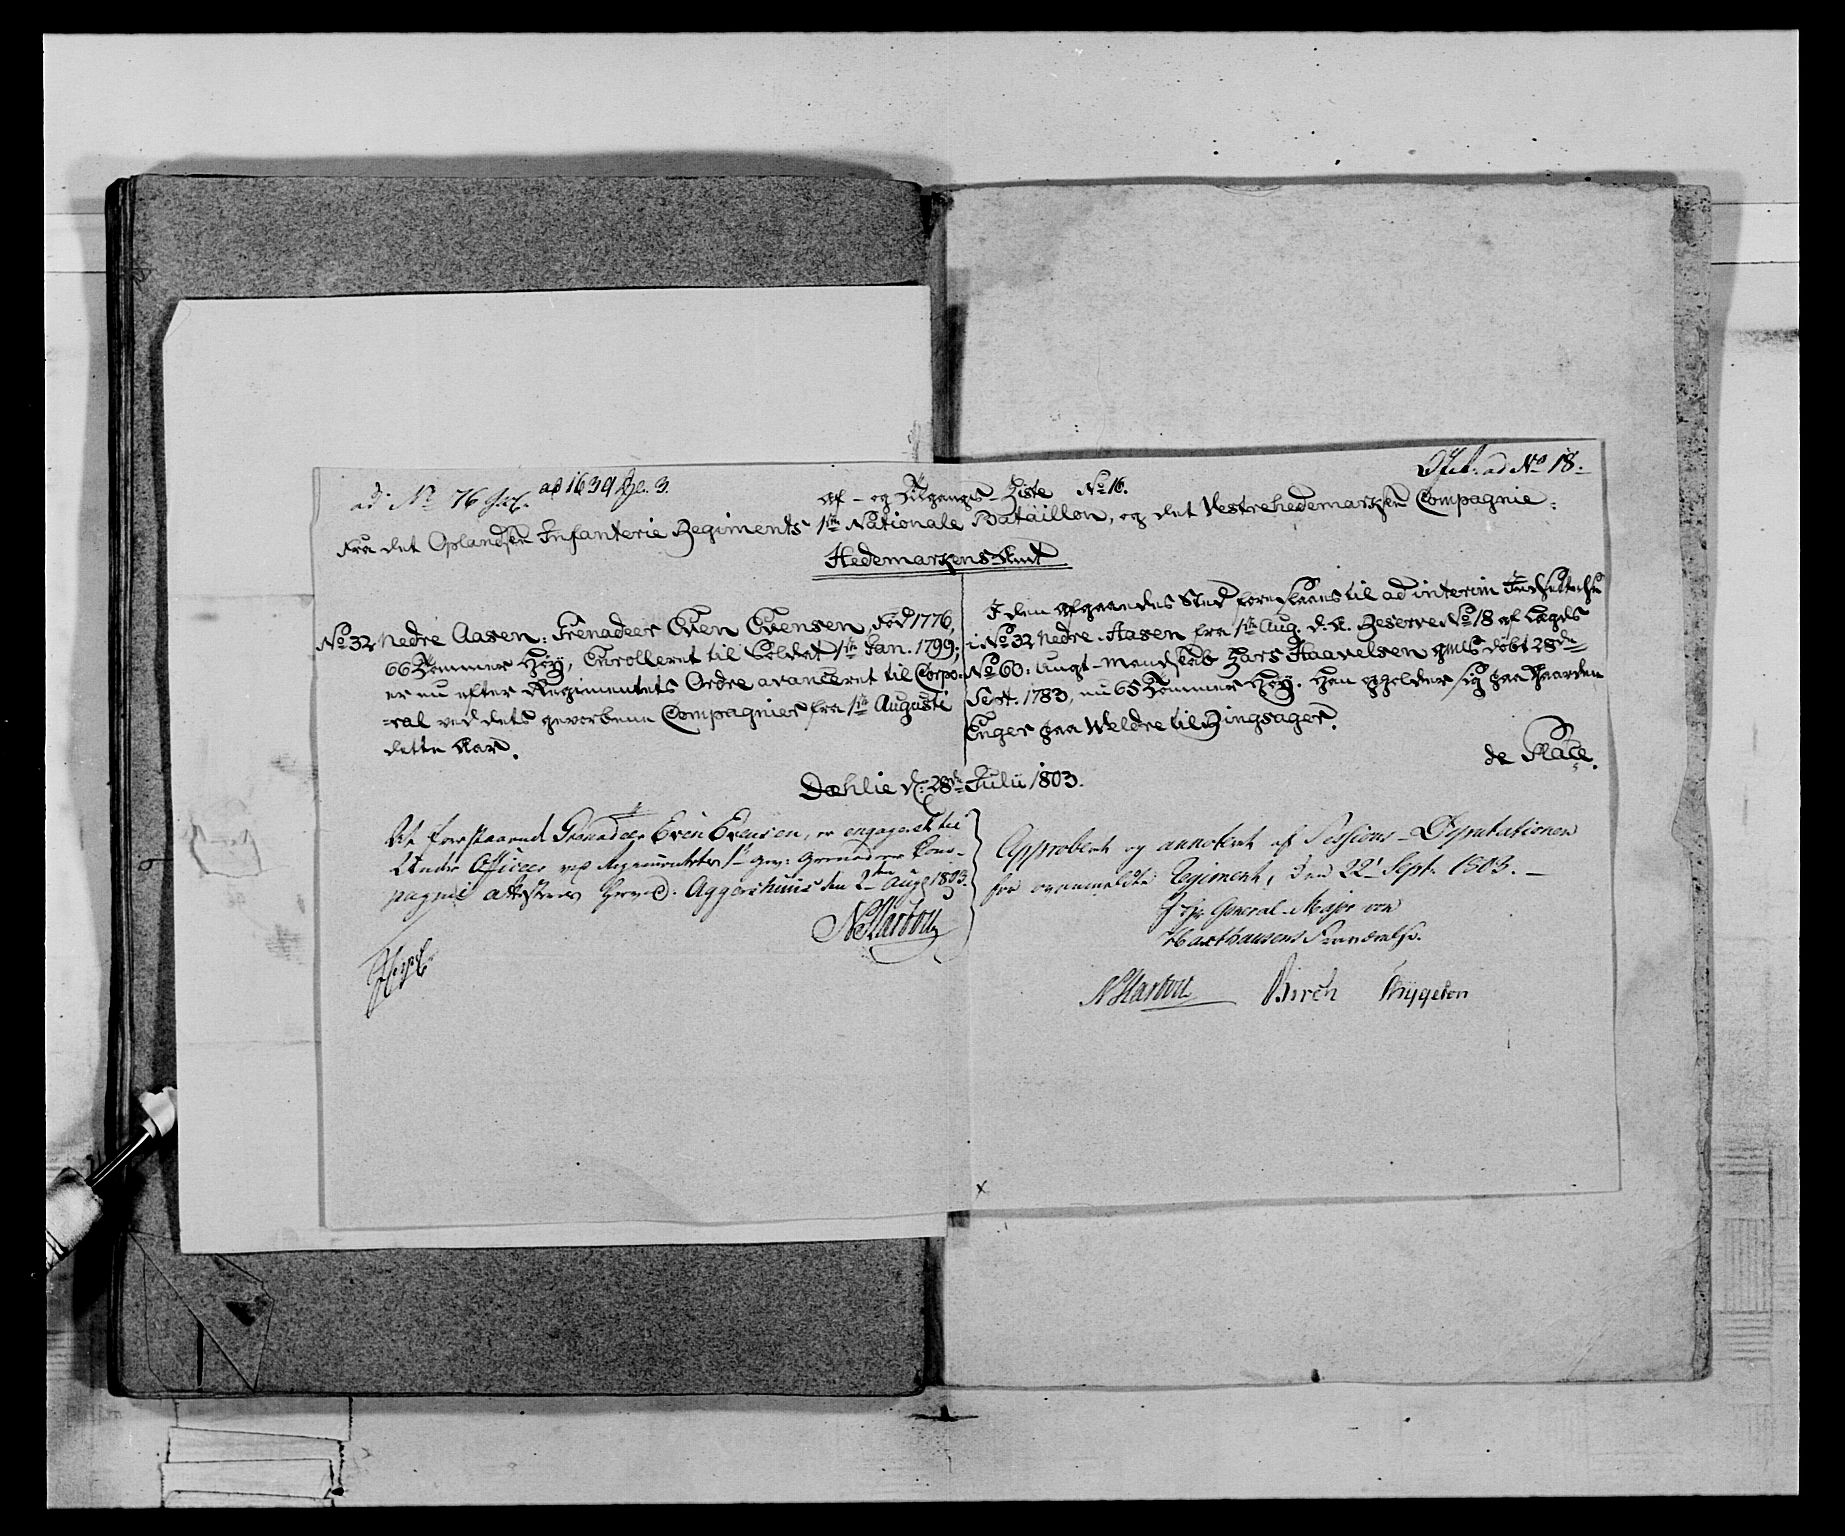 ad No 76
ad 1639
No 18.
Af- og Tilgangs-Liste No 16.
Fra det Oplandske Infanterie Regiments 1ste Nationale Bataillon, og det Vestrehedemarkske Compagnie.
Hedemarkens Amt
No 32 Nedre Aasen: Grenadeer Even Evensen, fød 1776,
66 Tommer Høy, Enrolleret til Soldat 1ste Jan. 1799,
er nu efter Regimentets Ordre avanceret til Corpo-
-ral ved dets gevorbene Compagnier fra 1ste Augusti
dette Aar.
I den afgaaendes Sted foreslaaes til ad interim Indsættelse
i No 32 Nedre-Aasen fra 1ste Aug. d. A. Reserve No 18 af Lægds
No 60: Ungt-Mandskab Lars Haavelsen døbt 28de
Sept. 1783, nu 65 Tommer Høy. Han opholder sig paa Gaarden
Enger paa Weldre til Ringsager.
de Place.
Dæhlie d: 28de Julii 1803.
At forestaaende Grenadeer Even Evensen, er engageret til
Under Officer ved Regimentets 1ste gev: Grenadeer Com-
pagnie attesteres herved. Aggershuus den 2den Aug 1803.
N Harbou
Approberet og annoteret af Sessions-Deputationen
for ovenmeldte Regiment, den 22de Sept. 1803.
I Hr General-Major von
Haxthausens Fraværelse.
N Harbou Birch Thygeson